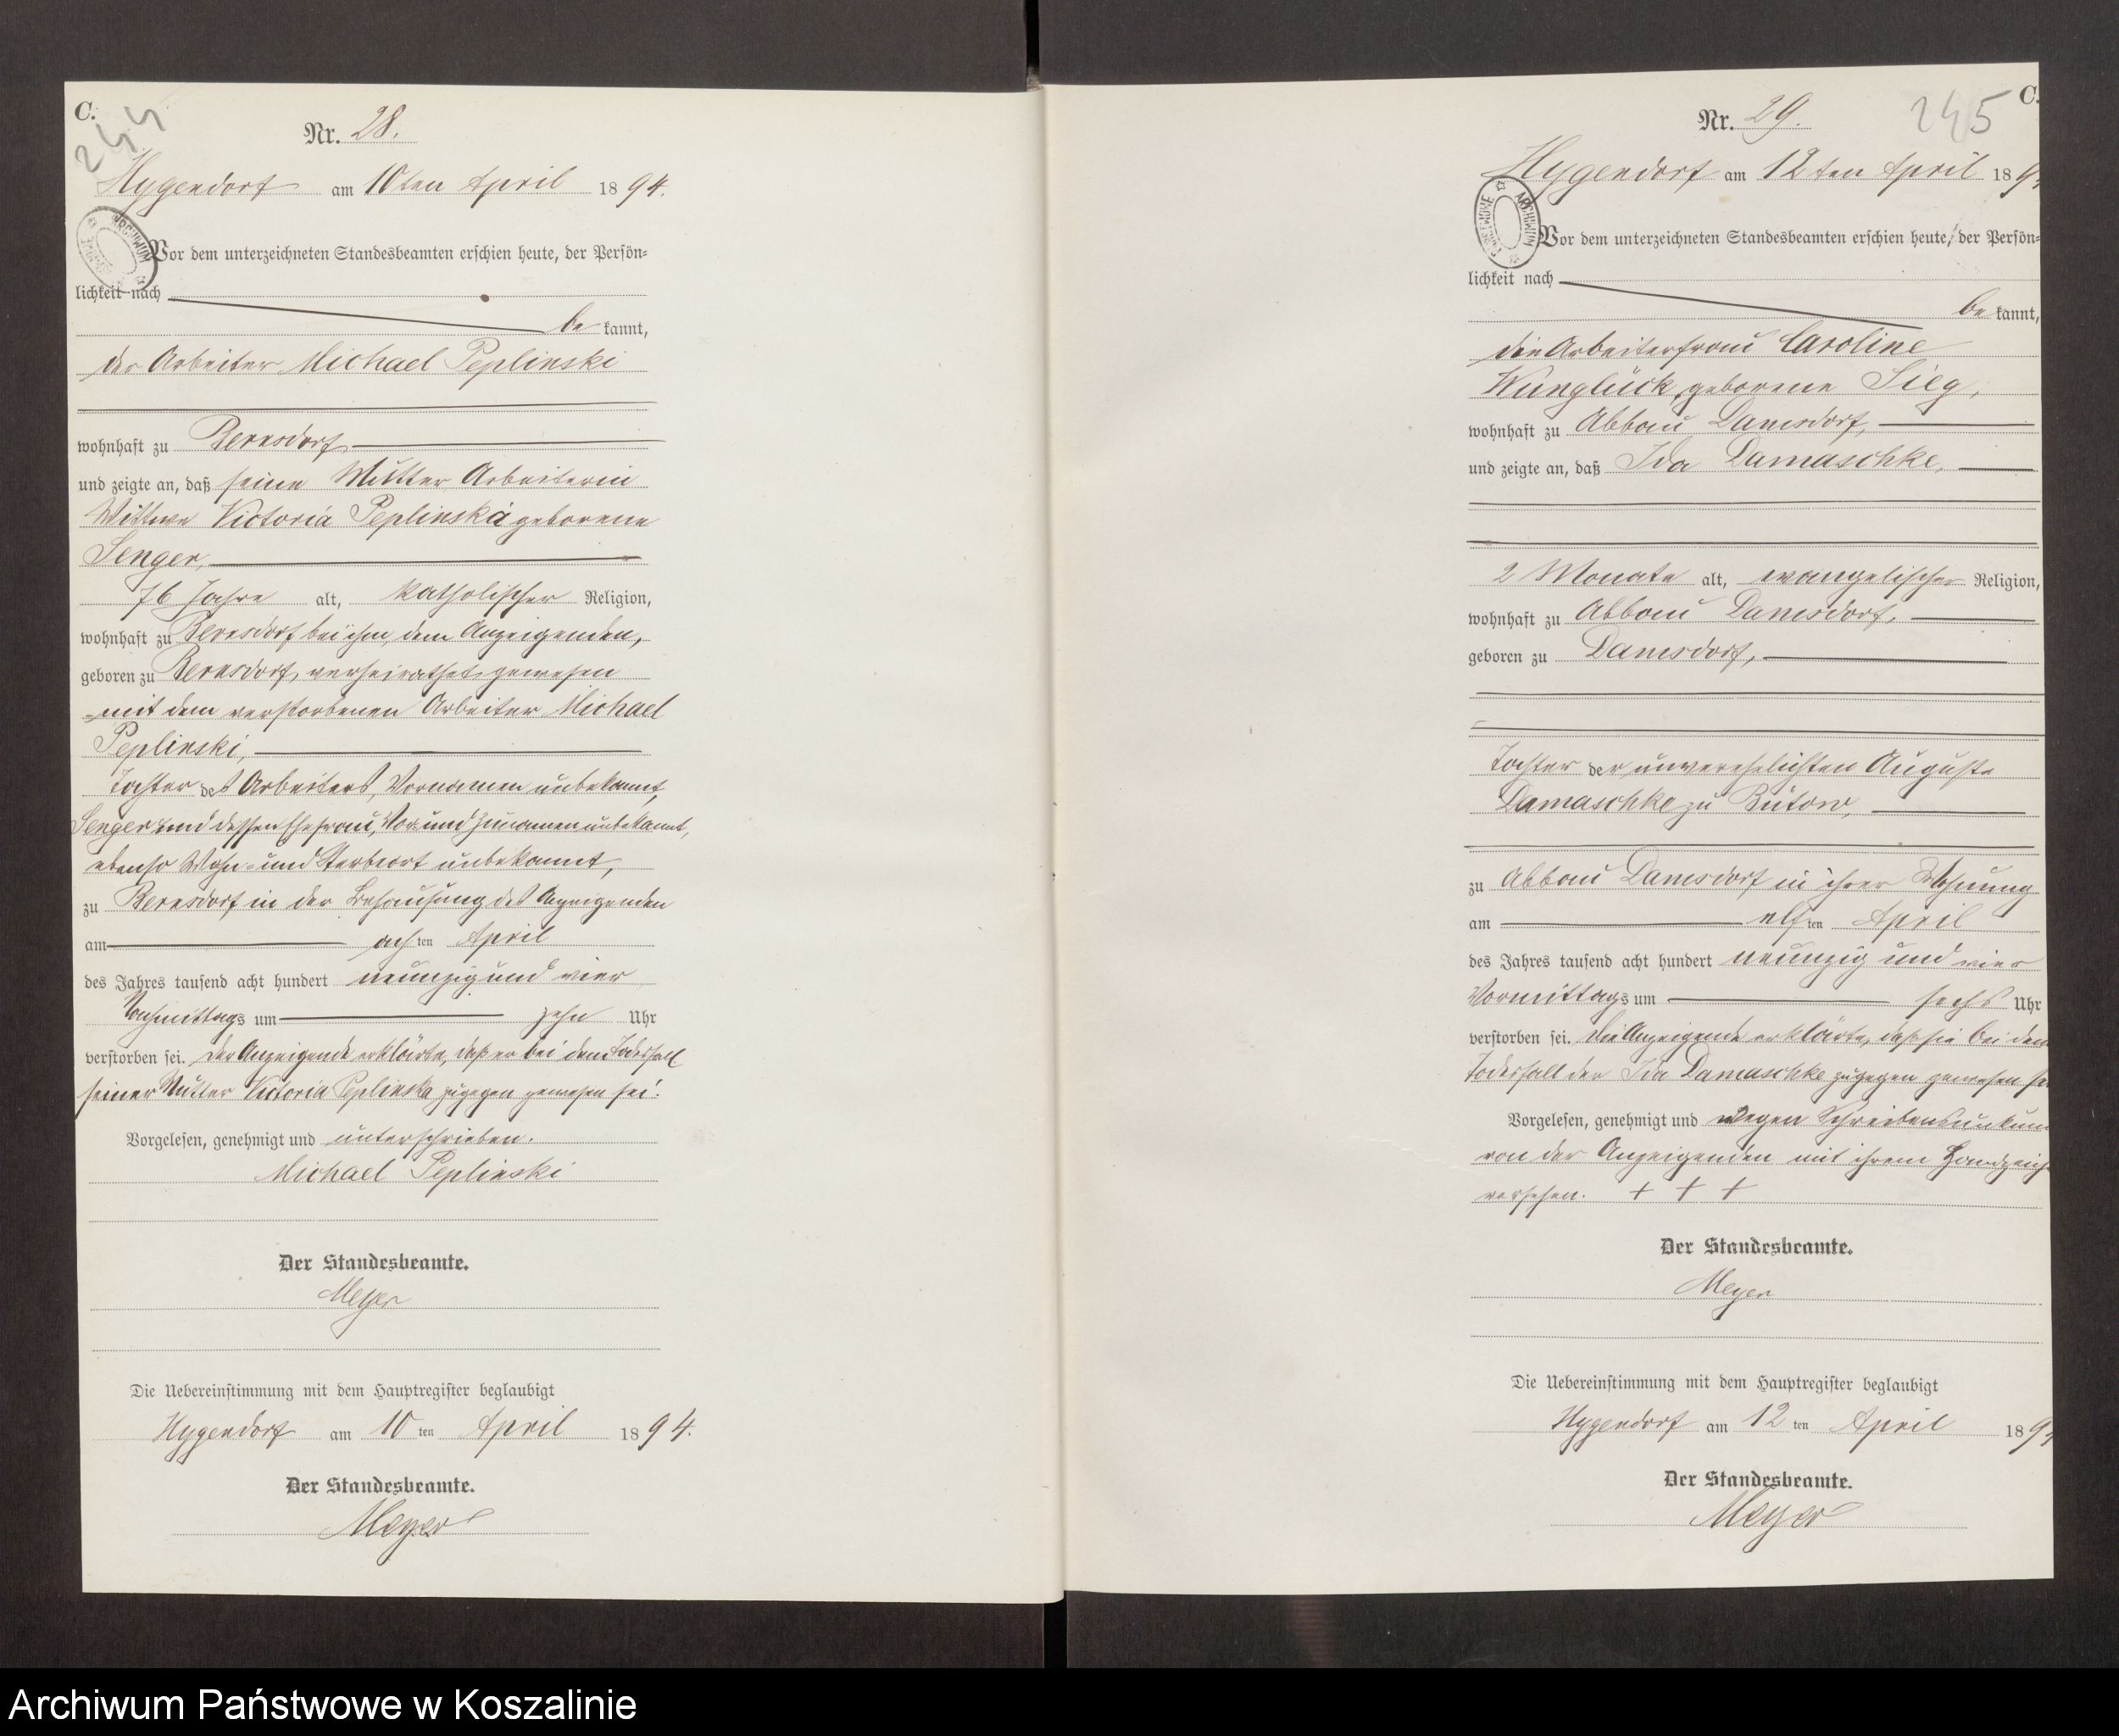 C.
244
Nr. 28.
Hygendorf am 10ten April 1894.
Vor dem unterzeichneten Standesbeamten erschien heute, der Persön=
lichkeit nach
be kannt,
der Arbeiter Michael Peplinski
wohnhaft zu Bernsdorf
und zeigte an, daß seine Mutter Arbeiterin
Wittwe Victoria Peplinska geborene
Senger,
76 Jahre alt, katholischer Religion,
wohnhaft zu Bernsdorf bei ihm, dem Anzeigenden,
geboren zu Bernsdorf, verheirathet gewesen
mit dem verstorbenen Arbeiter Michael
Peplinski,
Tochter des Arbeiters, Vornamen unbekannt,
Senger und dessen Ehefrau, Vor und Zunamen unbekannt,
ebenso Wohn- und Sterbeort unbekannt,
zu Bernsdorf in der Behausung des Anzeigenden
am achten April
des Jahres tausend acht hundert neunzig und vier
Nachmittags um zehn Uhr
verstorben sei. Der Anzeigende erklärte, daß er bei dem Todesfall
seiner Mutter Victoria Peplinska zugegen gewesen sei.
Vorgelesen, genehmigt und unterschrieben.
Michael Peplinski
Der Standesbeamte.
Meyer
Die Uebereinstimmung mit dem Hauptregister beglaubigt
Hygendorf am 10 ten April 1894.
Der Standesbeamte.
Meyer
C.
245
Nr. 29.
Hygendorf am 12ten April 189
ARCHIWUM
Vor dem unterzeichneten Standesbeamten erschien heute, der Persön=
lichkeit nach
be kannt,
die Arbeiterfrau Caroline
Wunglück, geborene Sieg,
wohnhaft zu Abbau Damsdorf,
und zeigte an, daß Ida Damaschke,
2 Monate alt, evangelischer Religion,
wohnhaft zu Abbau Damsdorf,
geboren zu Damsdorf,
Tochter der unverehelichten Auguste
Damaschke zu Bütow,
zu Abbau Damsdorf in ihrer Wohnung
am elften April
des Jahres tausend acht hundert neunzig und vier
Vormittags um sechs Uhr
verstorben sei. Die Anzeigende erklärte, daß sie bei dem
Todesfall der Ida Damaschke zugegen gewesen se
Vorgelesen, genehmigt und wegen Schreibensunkun
von der Anzeigenden mit ihrem Handzeich
versehen. + + +
Der Standesbeamte.
Meyer
Die Uebereinstimmung mit dem Hauptregister beglaubigt
Hygendorf am 12 ten April 189
Der Standesbeamte.
Meyer
Archiwum Państwowe w Koszalinie